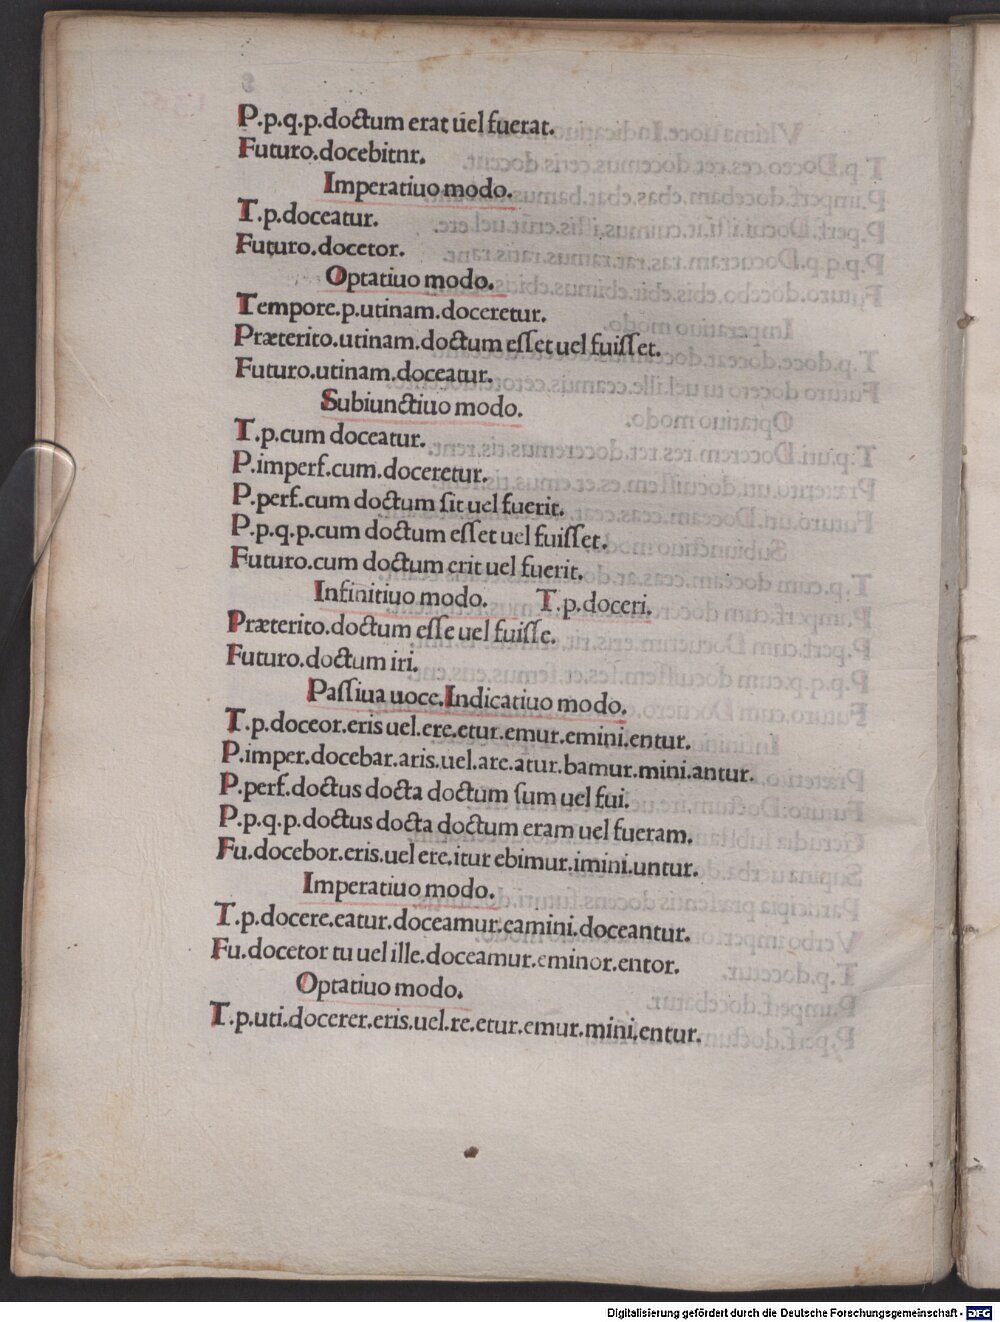 P.p.q.p.doctum erat uel fuerat.
Futuro.docebitnr.
Imperatiuo modo.
T.p.doceatur.
Futuro.docetor.
Optatiuo modo.
Tempore.p.utinam.doceretur.
Præterito.utinam.doctum eſſet uel fuiſſet.
Futuro.utinam.doceatur.
Subiunctiuo modo.
T.p.cum doceatur.
P.imperf.cum.doceretur.
P.perf.cum doctum ſit uel fuerit.
P.p.q.p.cum doctum eſſet uel fuiſſet.
Futuro.cum doctum erit uel fuerit.
Infinitiuo modo. T.p.doceri.
Præterito.doctum eſſe uel fuiſſe.
Futuro.doctum iri.
Paſſiua uoce.Indicatiuo modo.
T.p.doceor.eris uel.ere.etur.emur.emini.entur.
P.imper.docebar.aris.uel.are.atur.bamur.mini.antur.
P.perf.doctus docta doctum ſum uel fui.
P.p.q.p.doctus docta doctum eram uel fueram.
Fu.docebor.eris.uel ere.itur ebimur.imini.untur.
Imperatiuo modo.
T.p.docere.eatur.doceamur.eamini.doceantur.
Fu.docetor tu uel ille.doceamur.eminor.entor.
Optatiuo modo.
T.p.uti.docerer.eris.uel.re.etur.emur.mini.entur.
Digitalisierung gefördert durch die Deutsche Forschungsgemeinschaft - DFG